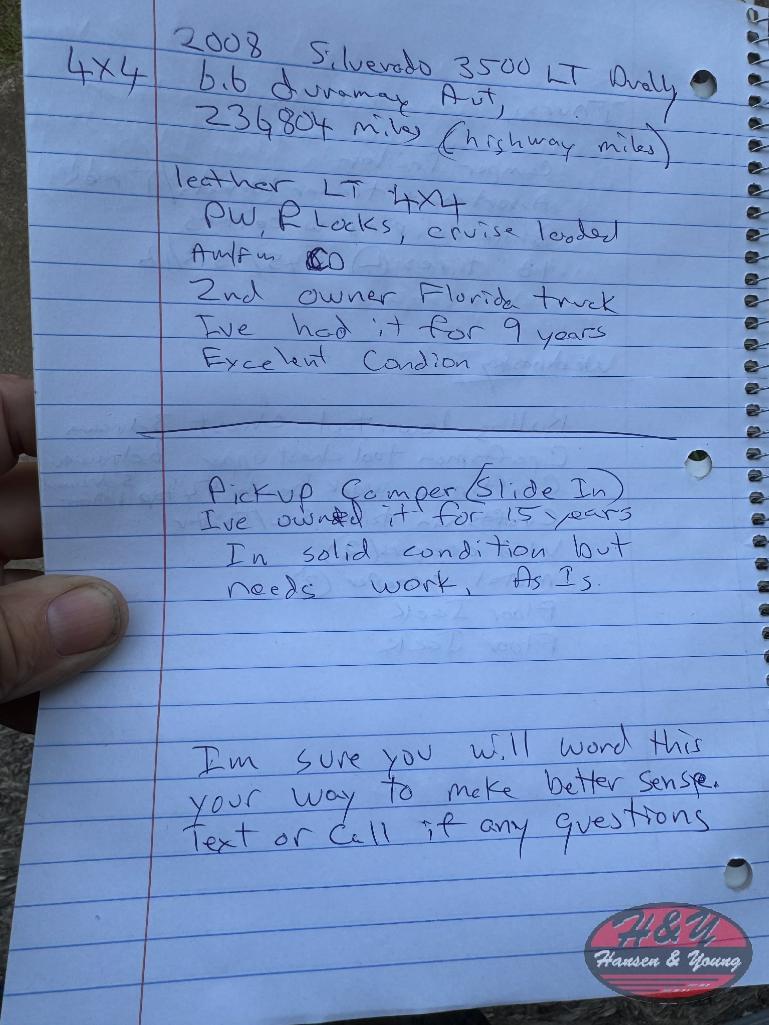 2008 Silverado 3500 LT Dually
4X4 6.6 duramax Aut,
236,804 miles (highway miles)
leather LT 4X4
PW, P Locks, cruise loaded
Am/Fm CD
2nd owner Florida truck
Ive had it for 9 years
Excelent Condion
Pickup Camper (Slide In)
Ive owned it for 15 years
In solid condition but
needs work, As Is.
Im sure you will word this
your way to make better sense.
Text or Call if any questions
H&Y
Hansen & Young